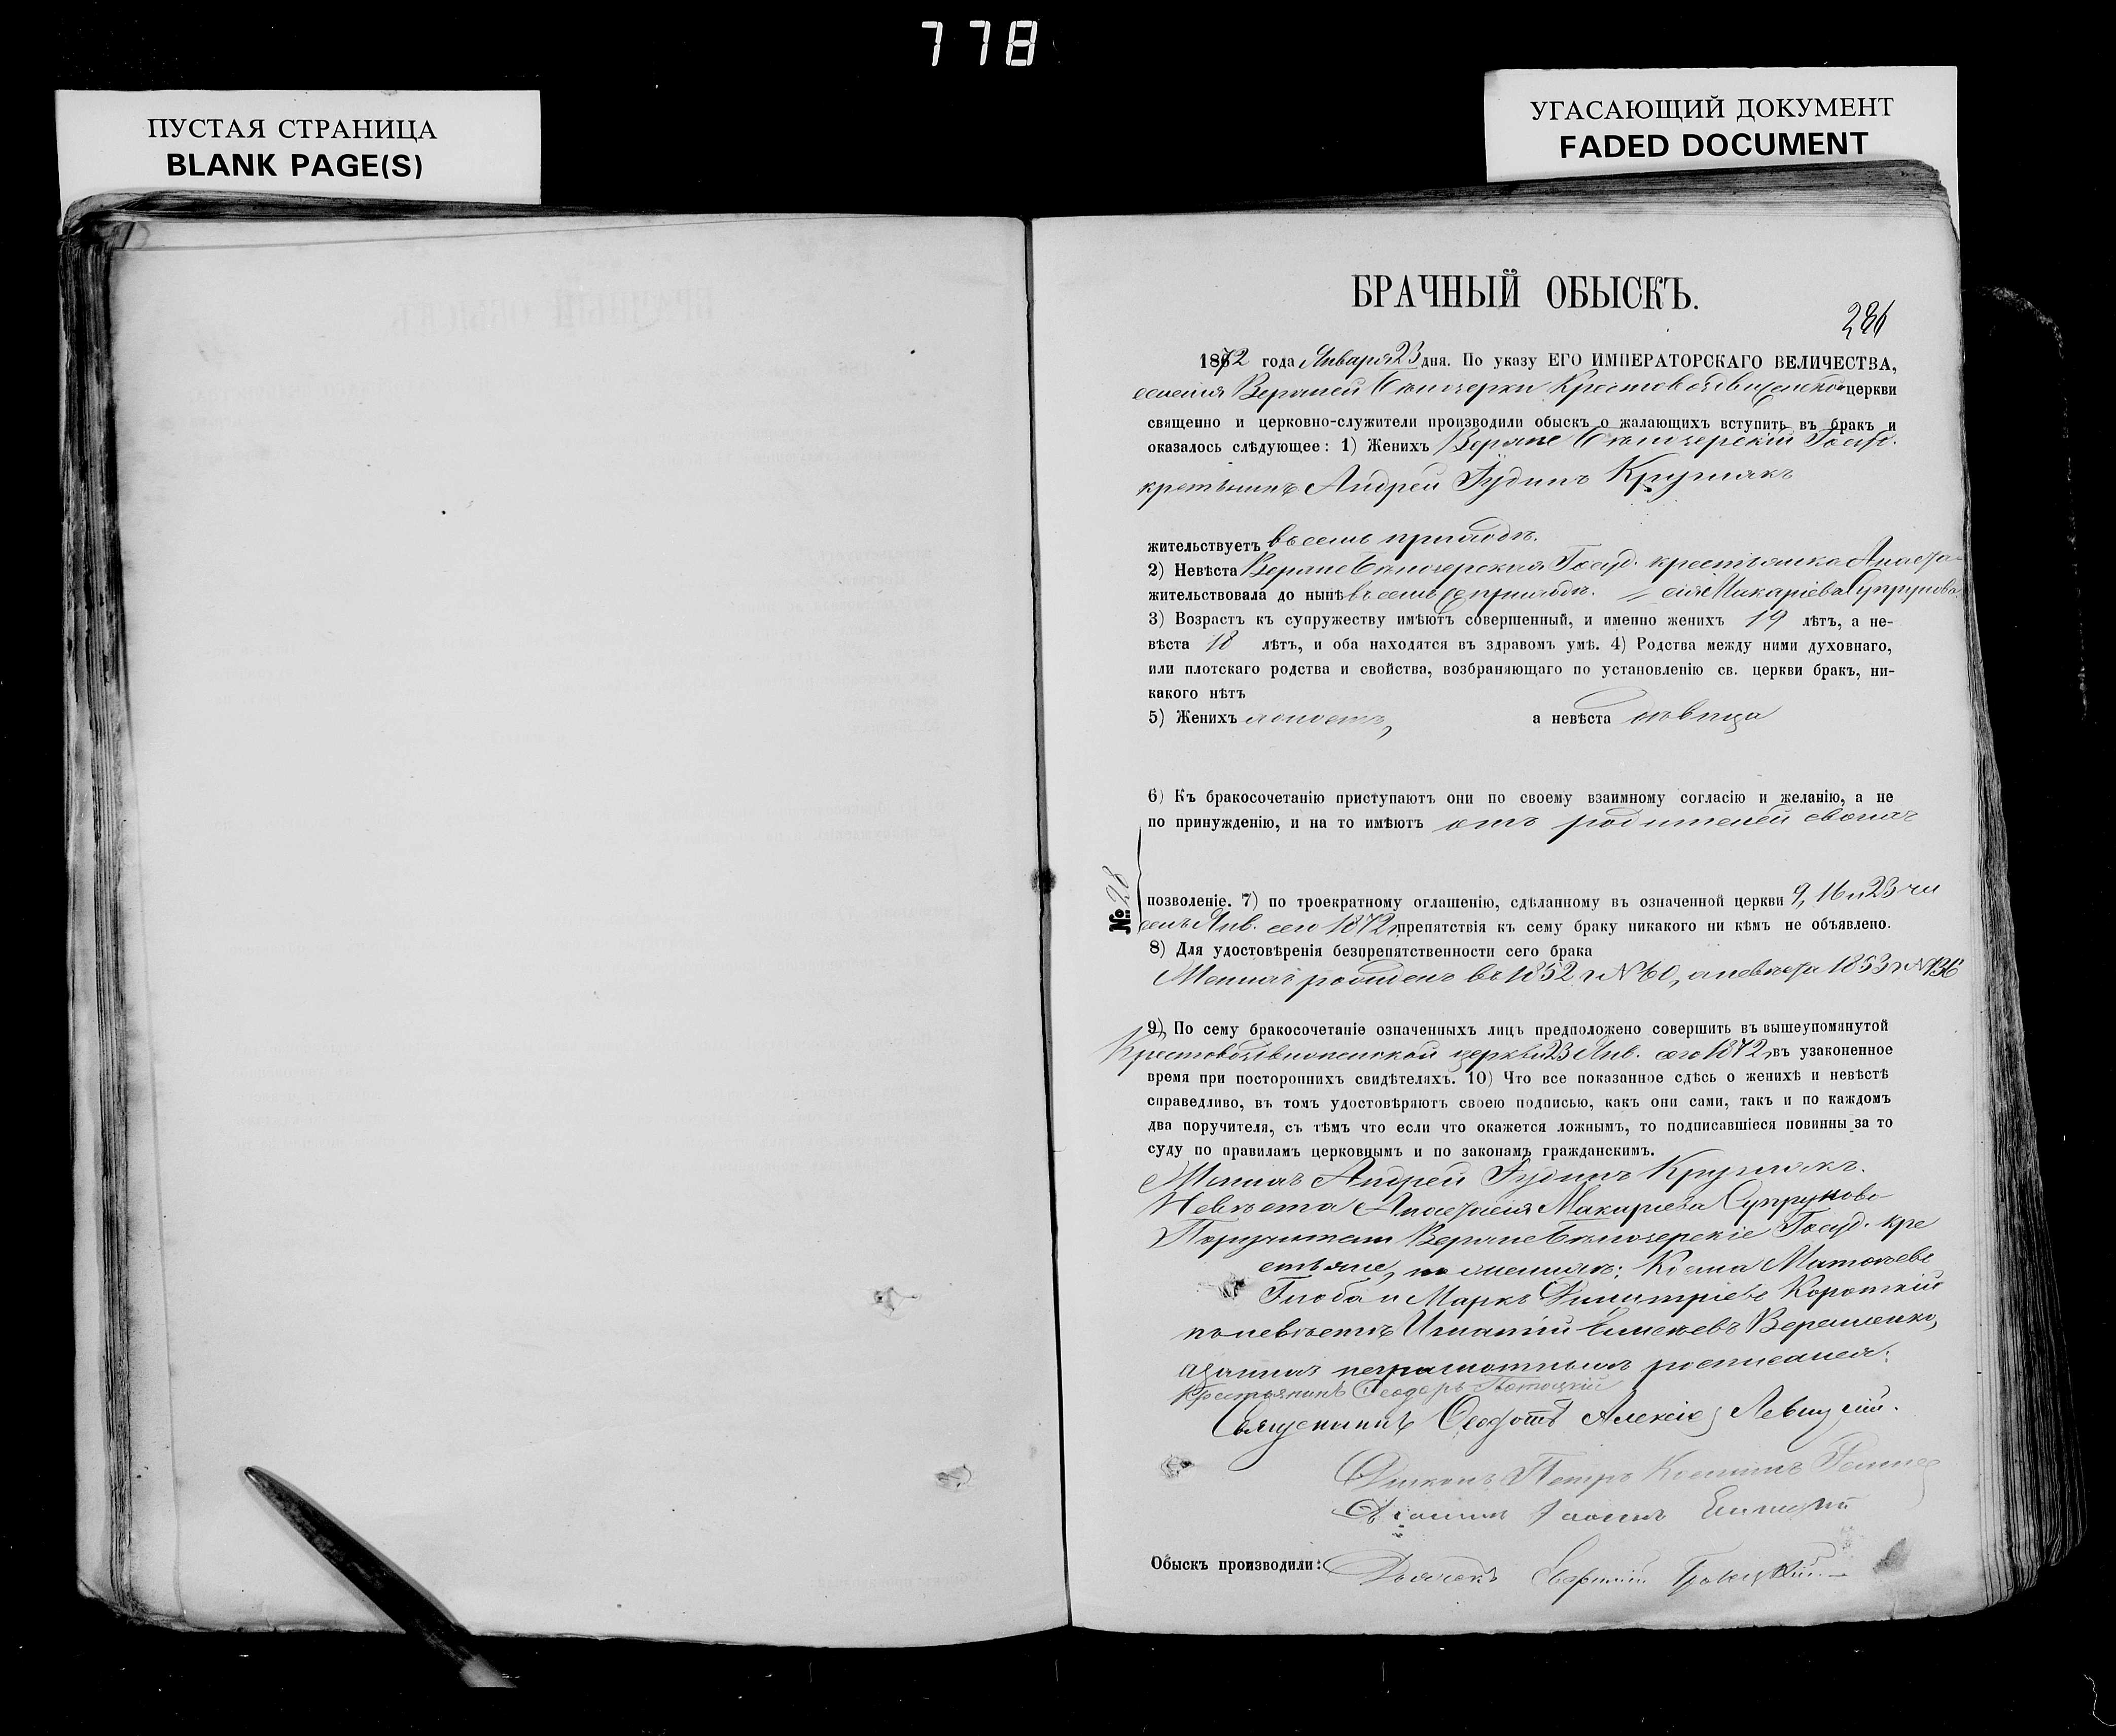 778
ПУСТАЯ СТРАНИЦА
BLANK PAGE(S)
УГАСАЮЩИЙ ДОКУМЕНТ
FADED DOCUMENT
БРАЧНЫЙ ОБЫСКЪ.
286
1872 года Января 23 дня. По указу ЕГО ИМПЕРАТОРСКАГО ВЕЛИЧЕСТВА,
селенія Верхней Бѣлозерки Крестовоздвиженской церкви
священно и церковно-служители производили обыскъ о жалающихъ вступить въ бракъ и
оказалось слѣдующее: 1) Женихъ Верхне Бѣлозерскій Госуд.
крестьнинъ Андрей Іудинъ
жительствуетъ въ семъ приходѣ.
2) Невѣста Верхне Бѣлозерская Госуд. крестьянка Анаста-
жительствовала до нынѣ въ семъ же приходѣ. // сія Макаріева Супрунова
3) Возрастъ къ супружеству имѣютъ совершенный, и именно женихъ 19 лѣтъ, а не-
вѣста 18 лѣтъ, и оба находятся въ здравомъ умѣ. 4) Родства между ними духовнаго,
или плотскаго родства и свойства, возбраняющаго по установленію св. церкви бракъ, ни-
какого нѣтъ
5) Женихъ холостъ, а невѣста дѣвица
6) Къ бракосочетанію приступаютъ они по своему взаимному согласію и желанію, а не
по принужденію, и на то имѣютъ отъ родителей своихъ
№ 28
позволеніе. 7) по троекратному оглашенію, сдѣланному въ означенной церкви 9, 16 и 23 чи
селъ Янв. сего 1872 г. препятствія къ сему браку никакого ни кѣмъ не объявлено.
8) Для удостовѣренія безпрепятственности сего брака
Женихъ рожденъ въ 1852 г № 60, а невѣста 1853 г № 136
9) По сему бракосочетаніе означенныхъ лицъ предположено совершить въ вышеупомянутой
Крестовоздвиженской церкви 23 Янв. сего 1872 г. въ узаконенное
время при постороннихъ свидѣтеляхъ. 10) Что все показанное сдѣсь о женихѣ и невѣстѣ
справедливо, въ томъ удостовѣряютъ своею подписью, какъ они сами, такъ и по каждомъ
два поручителя, съ тѣмъ что если что окажется ложнымъ, то подписавшіеся повинны за то
суду по правиламъ церковнымъ и по законамъ гражданскимъ.
Женихъ Андрей Іудинъ
Невѣста Анастасія Макаріева Супрунова
Поручители Верхне Бѣлозерскіе Госуд. кре
стьяне, по женихѣ: Косма Матѳеевъ
Глоба и Маркъ Димитріевъ Короткій
по невѣстѣ Игнатій Верещенко,
а за нихъ неграмотныхъ росписался:
Крестьянинъ Ѳеодоръ
Священникъ Ѳеодотъ Алексіевъ Левицкій.
Діаконъ Петръ Косминъ
Обыскъ производили: Дьячекъ